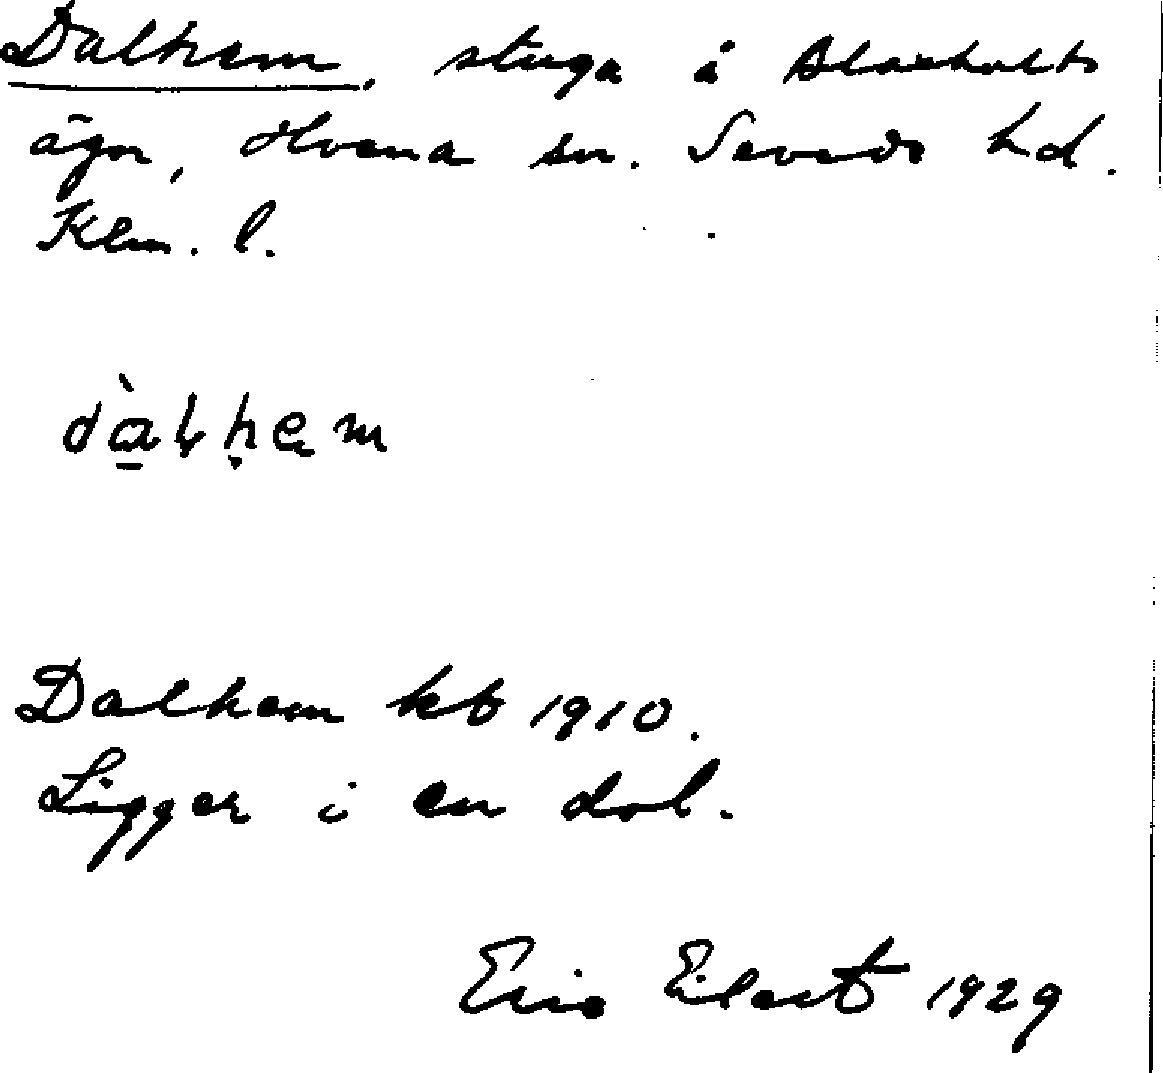 Dalhem, stuga å Blaxhults
ägor, Hvena sn. Sevede hd.
Klm. l.
dàlhem
Dalhem kb 1910.
Ligger i en dal.
Eric Elert 1929